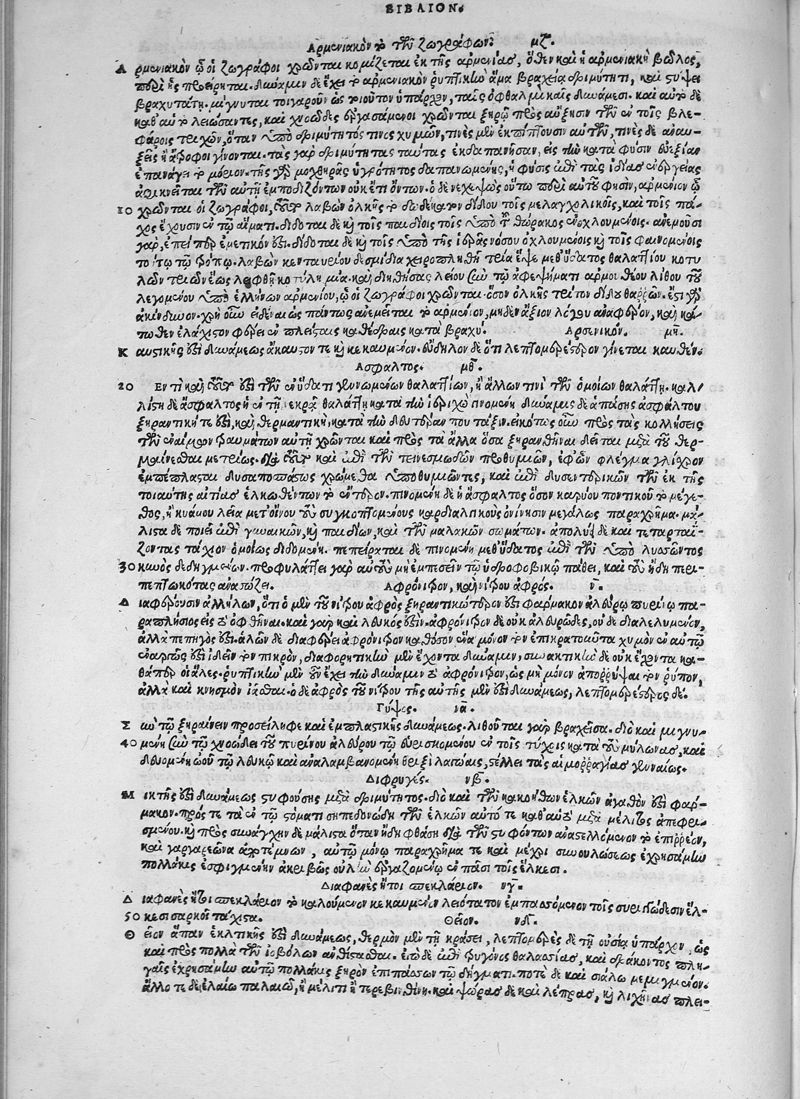 ΒΙΒΛΙΟΝ.
Ἀρμενιακὸν τὸ τῶν ζωγράφων. μζ.
Ἀρμενιακὸν ᾧ οἱ ζωγράφοι χρῶνται κομίζεται ἐκ τῆς ἀρμενίας, ὅθεν καὶ ἡ ἀρμενιακὴ βῶλος,
περὶ ἧς προείρηται. δύναμιν δὲ ἔχει τὸ ἀρμενιακὸν ῥυπτικὴν ἅμα βραχείᾳ δριμύτητι, καὶ στύψει
βραχυτάτῃ. μίγνυται τοιγαροῦν ὡς τοιοῦτον ὑπάρχον, ταῖς ὀφθαλμικαῖς δυνάμεσι. καὶ αὐτὸ δὲ
καθ' αὑτὸ λειώσαντες, καὶ χνοῶδες ἐργασάμενοι χρῶνται ξηρῷ πρὸς αὔξησιν τῶν ἐν τοῖς βλε-
φάροις τριχῶν, ὅταν ὑπὸ δριμύτητός τινος χυμῶν, τινὲς μὲν ἐκπίπτουσιν αὐτῶν, τινὲς δὲ ἀναυ-
ξεῖς ἢ ἄτροφοι γίνονται. τὰς γὰρ δριμύτητας ταύτας ἐκδαπανῆσαν, εἰς τὴν κατὰ φύσιν εὐεξίαν
ἐπανάγει τὸ μόριον. τῆς γὰρ μοχθηρᾶς ὑγρότητος δαπανωμένης, ἡ φύσις ἐπὶ τὰς ἰδίας ἐνεργείας
ἀφικνεῖται τῶν αὐτῇ ἐμποδιζόντων οὐκ ἔτι ὄντων. ὁ δὲ νεχεψὼς οὕτω περὶ αὐτοῦ φησιν, ἀρμένιον ᾧ
10 χρῶνται οἱ ζωγράφοι, τοῦτο λαβὼν ὁλκῆς τὸ δωδέκατον δίδου τοῖς μελαγχολικοῖς, καὶ τοῖς πά-
χος ἔχουσιν ἐν τῷ αἵματι. δίδοται δὲ καὶ τοῖς παιδίοις τοῖς ὑπὸ τοῦ θώρακος ἐνοχλουμένοις. ἀνεμοῦσι
γὰρ, ἐπείπερ ἐμετικόν ἐστι. δίδοται δὲ καὶ τοῖς ὑπὸ τῆς ἱερᾶς νόσου ὀχλουμένοις καὶ τοῖς φαινομένοις
λεγομένου ὑπὸ ἑλλήνων ἀρμενίου, ᾧ οἱ ζωγράφοι χρῶνται. ὅσον ὁλκῆς τρίτον δίδου θαρρῶν. ἔστι γὰρ
ἀκίνδυνον. χρὴ οὖν εἰδέναι ὡς πάντως ἀνεμεῖται τὸ ἀρμένιον, μηδὲν ἄξιον λόγου ἀναφέρον, καὶ κά-
τωθεν ἐλάχιστον φέρει ἐν πλείσταις καθέδραις κατὰ βραχύ. Ἀρσενικόν. μη.
Καυστικῆς ἐστι δυνάμεως ἄκαυστόν τε καὶ κεκαυμένον. εὔδηλον δὲ ὅτι λεπτομερέστερον γίνεται καυθέν.
Ἄσφαλτος. μθ.
20 Ἐν τι καὶ τοῦτό ἐστι τῶν ἐν ὕδατι γεννωμένων θαλαττίῳ, ἢ ἄλλων τινὶ τῶν ὁμοίων θαλάττῃ. καλ-
λίστη δὲ ἄσφαλτος ἡ ἐν τῇ νεκρᾷ θαλάττῃ κατὰ τὴν ἱεριχὼ γινομένη. δύναμις δὲ ἁπάσης ἀσφάλτου
ξηραντική τέ ἐστι, καὶ θερμαντική, κατὰ τὴν δευτέραν που τάξιν. εἰκότως οὖν πρὸς τὰς κολλήσεις
τῶν ἐναίμων τραυμάτων αὐτῇ χρῶνται καὶ πρὸς τὰ ἄλλα ὅσα ξηρανθῆναι δεῖται μετὰ τοῦ θερ-
μαίνεσθαι μετρίως. διὰ τοῦτο καὶ ἐπὶ τῶν τεινεσμωδῶν προθυμιῶν, ἐφ' ὧν φλέγμα γλίσχρον
ἐμπέπλασται δυσαποσπάστως χρώμεθα ὑποθυμιῶντες, καὶ ἐπὶ δυσεντερικῶν τῶν ἐκ τῆς
τοιαύτης αἰτίας ἑλκωθέντων τὸ ἔντερον. πινομένη δὲ ἡ ἄσφαλτος ὅσον καρύου ποντικοῦ τὸ μέγε-
θος, ἢ κυάμου λεία μετ' οἴνου τοὺς συγκοπτομένους καρδιαλγικοὺς ὀνίνησιν μεγάλως παραχρῆμα. μά-
λιστα δὲ ποιεῖ ἐπὶ γυναικῶν, καὶ παιδίων, καὶ τῶν μαλακῶν σωμάτων. ἀπολύει δὲ καὶ τεταρταΐ-
ζοντας τάχιον ὁμοίως διδομένη. πεπείραται δὲ πινομένη μεθ' ὕδατος ἐπὶ τῶν ὑπὸ λυσσῶντος
30 κυνὸς δεδηγμένων. προφυλάττει γὰρ αὐτοὺς μὴ ἐμπεσεῖν τῷ ὑδροφοβικῷ πάθει, καὶ τοὺς ἤδη περι-
πεπτωκότας ἀνασώζει. Ἀφρόνιτρον, καὶ νίτρου ἀφρός. ν.
Διαφέρουσιν ἀλλήλων, ὅτι ὁ μὲν τοῦ νίτρου ἀφρὸς ξηραντικώτερόν ἐστι φάρμακον ἀλεύρῳ πυρίνῳ πα-
ραπλήσιος εἰς τὸ ἐφθῆναι. καὶ γὰρ καὶ λευκός ἐστιν. ἀφρόνιτρον δὲ οὐκ ἀλευρῶδες, οὐδὲ διαλελυμένον,
ἀλλὰ πεπηγός ἐστιν. ἁλῶν δὲ διαφέρει ἀφρόνιτρον καθόσον ἕνα μόνον τὸν ἐπικρατοῦντα χυμὸν ἐν αὐτῷ
ἐναργῶς ἔστιν ἰδεῖν τὸν πικρὸν, διαφορητικὴν μὲν ἔχοντα δύναμιν, συνακτικὴν δὲ οὐκ ἔχοντα κα-
θάπερ οἱ ἅλες. ῥυπτικὴν μὲν οὖν ἔχει τὴν δύναμιν τὸ ἀφρόνιτρον, ὡς μὴ μόνον ἀπορρύψαι τὸν ῥύπον,
ἀλλὰ καὶ κνησμὸν ἰᾶσθαι. ὁ δὲ ἀφρὸς τοῦ νίτρου τῆς αὐτῆς μέν ἐστι δυνάμεως, λεπτομερέστερος δέ.
Γύψος. να.
Σὺν τῷ ξηραίνειν προσείληφε καὶ ἐμπλαστικῆς δυνάμεως. λιθοῦται γὰρ βραχεῖσα. διὸ καὶ μιγνυ-
40 μένη σὺν τῷ χνοώδει τοῦ πυρίνου ἀλεύρου τῷ εὑρισκομένῳ ἐν τοῖς τοίχοις κατὰ τοὺς μύλωνας, καὶ
δευομένη ὠοῦ τῷ λευκῷ καὶ ἀναλαμβανομένη θριξὶ λαγωαῖς, στέλλει τὰς αἱμορραγίας γενναίως.
Διφρυγές. νβ.
Μικτῆς ἐστι δυνάμεως στυφούσης μετὰ δριμύτητος. διὸ καὶ τῶν κακοήθων ἑλκῶν ἀγαθόν ἐστι φάρ-
μακον. πρός τε τὰ ἐν τῷ στόματι σηπεδονώδη τῶν ἑλκῶν αὐτό τε καθ' αὑτὸ καὶ μετὰ μέλιτος ἀπεφθι-
σμένου. καὶ πρὸς συνάγχην δὲ μάλιστα ὅταν ἤδη φθάσῃ διὰ τῶν στυφόντων ἀναστελλόμενον τὸ ἐπιρρέον,
καὶ γαργαρεῶνα ἀποτέμνων, αὐτῷ μόνῳ παραχρῆμα τε καὶ μέχρι συνουλώσεως ἐχρησάμην
πολλάκις ἐσφιγμένην ἀκριβῶς οὐλὴν ἐργαζομένῳ ἐν πᾶσι τοῖς ἕλκεσι.
Διαφανὲς ἤτοι σπεκλάριον. νγ.
Διαφανὲς ἤτοι σπεκλάριον τὸ καλούμενον κεκαυμένον λειότατον ἐμπασσόμενον τοῖς συριγγώδεσιν ἕλ-
50 κεσι σαρκοῖ τάχιστα. Θεῖον. νδ.
Θεῖον ἅπαν ἑλκτικῆς ἐστι δυνάμεως, θερμὸν μὲν τῇ κράσει, λεπτομερὲς δὲ τῇ οὐσίᾳ ὑπάρχον, ὡς
καὶ πρὸς πολλὰ τῶν ἰοβόλων ἀνθίστασθαι. ἐγὼ δὲ ἐπὶ τρυγόνος θαλασσίας, καὶ δράκοντος πλη-
γαῖς ἐχρησάμην αὐτῷ πολλάκις ξηρὸν ἐπιπάσσων τῷ δήγματι. ποτὲ δὲ καὶ σιάλῳ μεμιγμένον.
ἄλλοτε δὲ ἐλαίῳ παλαιῷ, ἢ μέλιτι ἢ τερεβινθίνῃ. καὶ ψώρας δὲ καὶ λέπρας, καὶ λιχῆνας πλει-